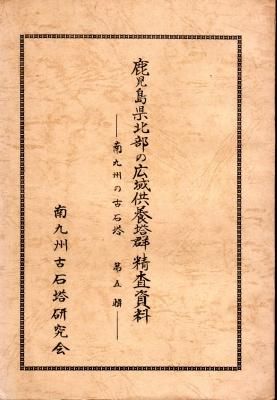 鹿児島県北部の広域供養塔群精査資料
――南九州の古石塔 第五輯――
南九州古石塔研究会